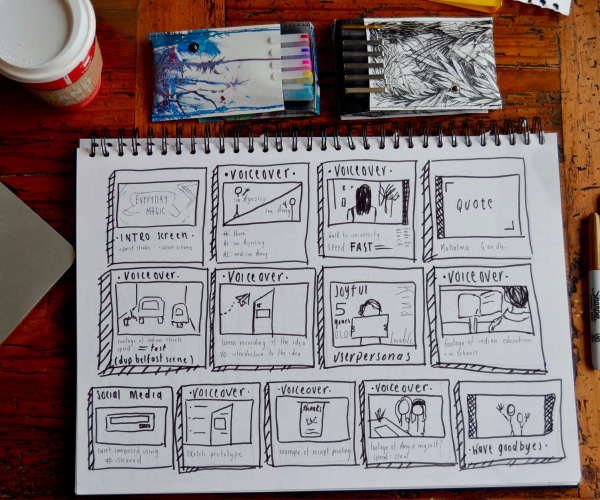 EVERYDAY
MAGIC
•INTRO screen•
•Voiceover•
im Ayusing
im Amy
Hi there!
•Voiceover•
walk to university
speed: FAST
Quote
Mahatma Gandhi
•Voiceover•
footage of indian streets
speed Fast
(dup belfast scene)
•Voiceover•
screen recording of the idea
VO: introduction to the idea
Joyful
5
years
OLD
Kind
Userpersonas
•Voiceover•
footage of indian education
in schools
Social Media
tweet composed using
#
•Voiceover•
Sketch prototype
•Voiceover•
example of receipt printing
•Voiceover•
footage of Amy & myself
speed slow
•Wave goodbyes•
Sharpie